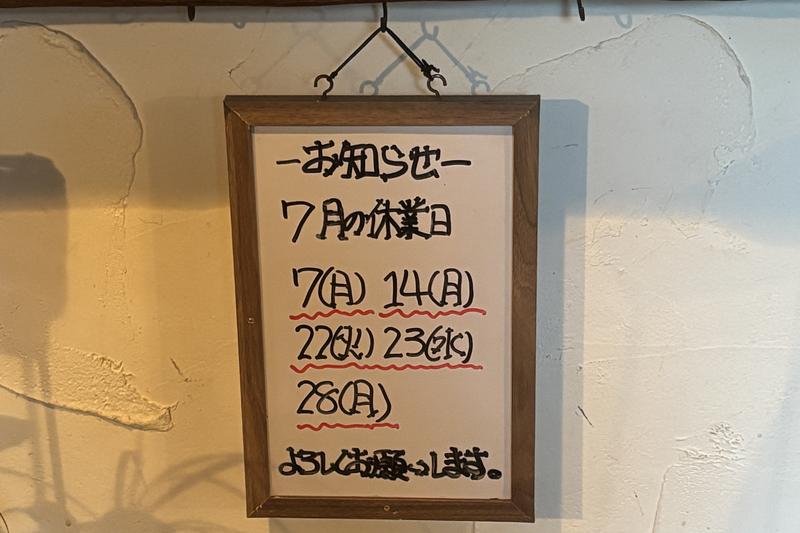 ーお知らせー
7月の休業日
7(月) 14(月)
22(火) 23(水)
28(月)
よろしくお願いします。